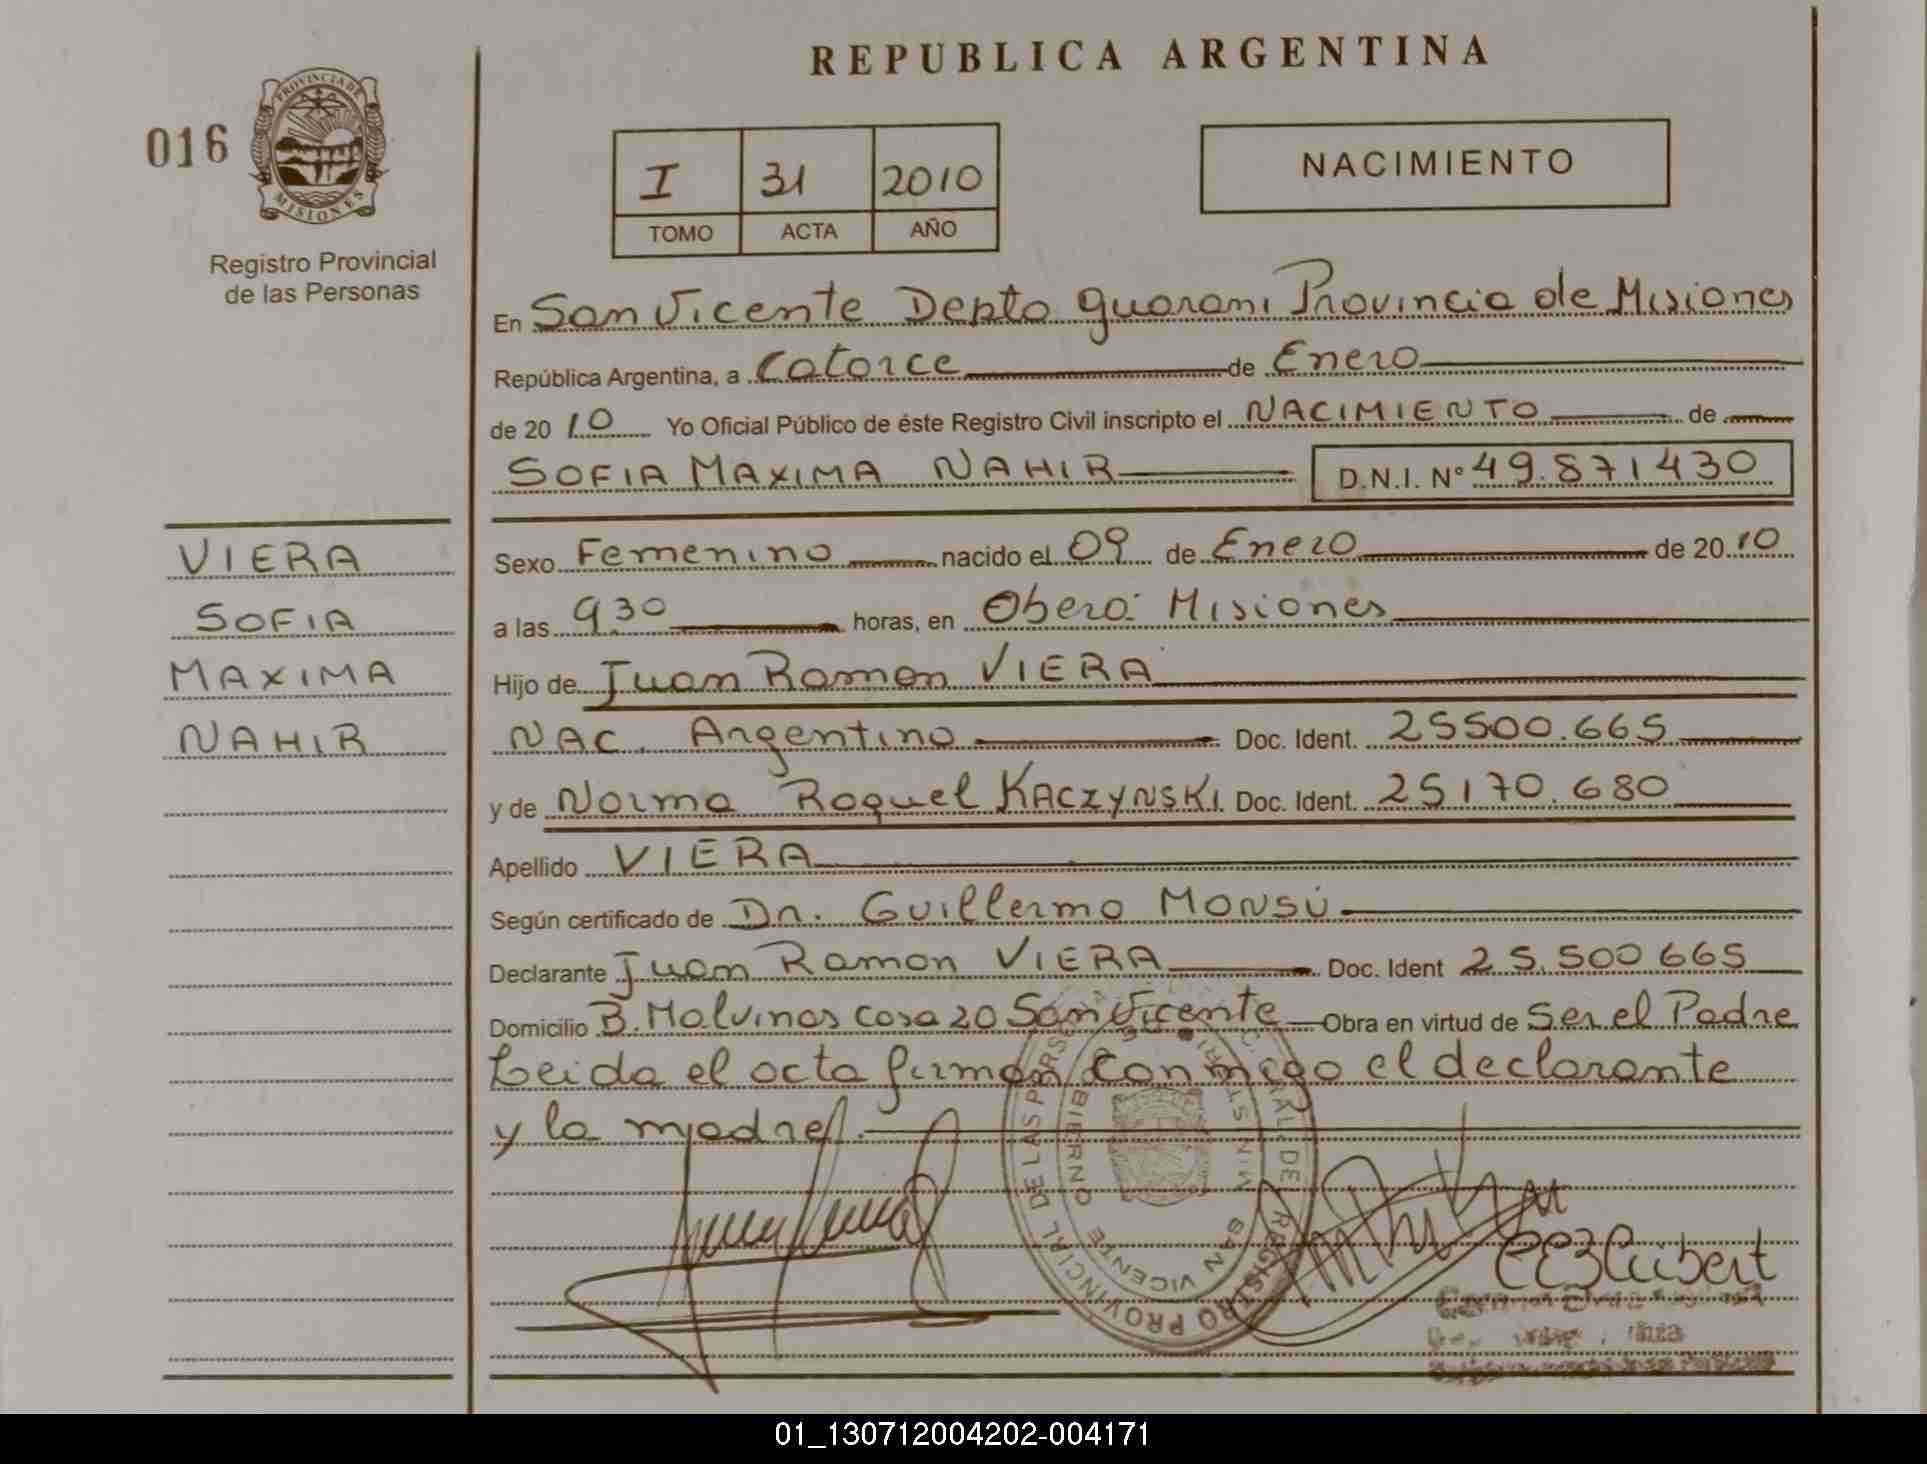 REPUBLICA ARGENTINA
016
PROVINCIA DE
MISIONES
Registro Provincial
de las Personas
I 31 2010
TOMO ACTA AÑO
NACIMIENTO
En San Vicente Depto guarani Provincia de Misiones
República Argentina, a Catorce de Enero
de 20 10 Yo Oficial Público de éste Registro Civil inscripto el NACIMIENTO de
SOFIA MAXIMA NAHIR D.N.I. Nº 49.871430
VIERA
SOFIA
MAXIMA
NAHIR
Sexo Femenino nacido el 09 de Enero de 20 10
a las 9.30 horas, en Oberá Misiones
Hijo de Juan Ramon VIERA
NAC. Argentino Doc. Ident. 25500.665
y de Norma Raquel KACZYNSKI Doc. Ident. 25170.680
Apellido VIERA
Según certificado de Dr. Guillermo MONSÚ
Declarante Juan Ramon VIERA Doc. Ident 25.500665
Domicilio B. Malvinas casa 20 San Vicente Obra en virtud de Ser el Padre
Leida el acta firman conmigo el declarante
y la madre.
REGISTRO PROVINCIAL DE LAS
SAN VICENTE
01_130712004202-004171